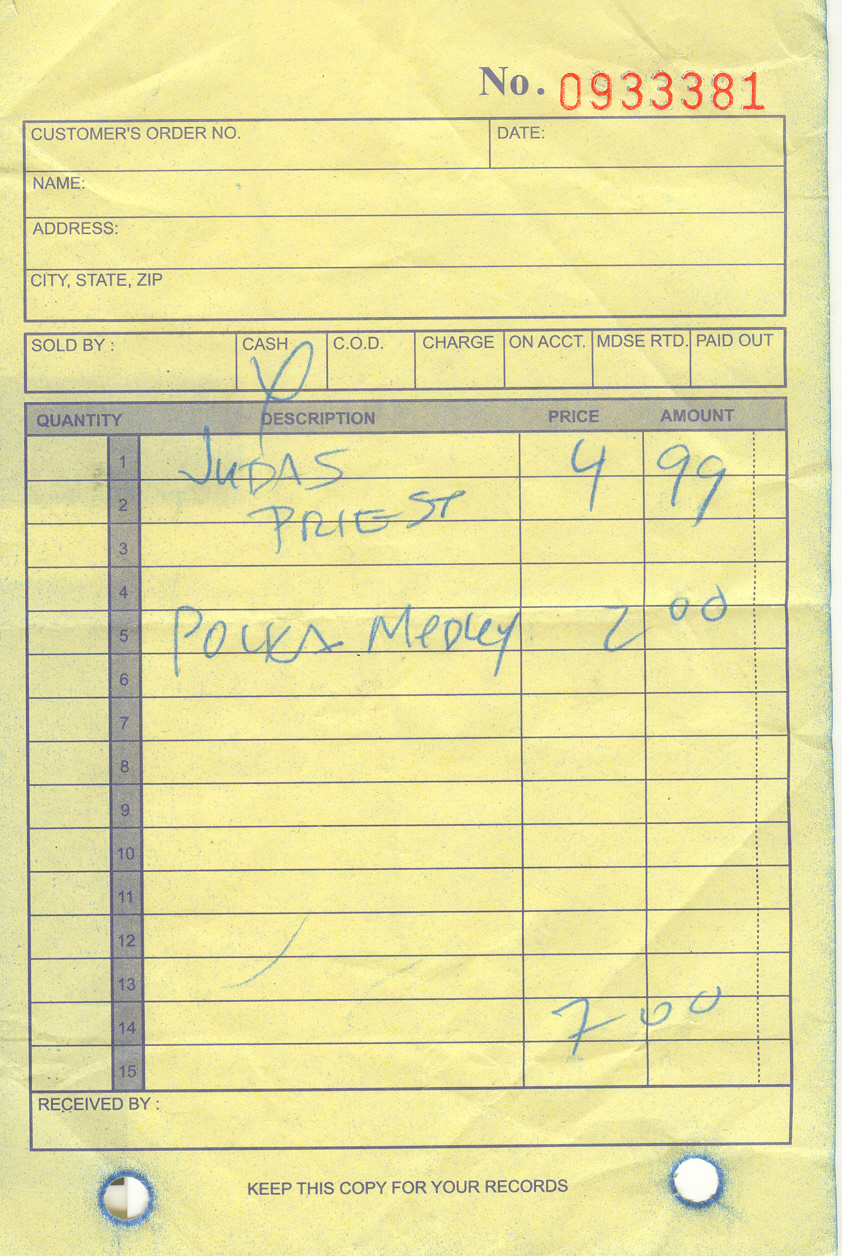 No. 0933381
CUSTOMER'S ORDER NO. DATE:
NAME:
ADDRESS:
CITY, STATE, ZIP
SOLD BY : CASH C.O.D. CHARGE ON ACCT. MDSE RTD. PAID OUT
QUANTITY DESCRIPTION PRICE AMOUNT
1 JUDAS 4 99
2 PRIEST
3
4
5 POLKA MEDLEY 2 00
6
7
8
9
10
11
12
13
14 7 00
15
RECEIVED BY :
KEEP THIS COPY FOR YOUR RECORDS